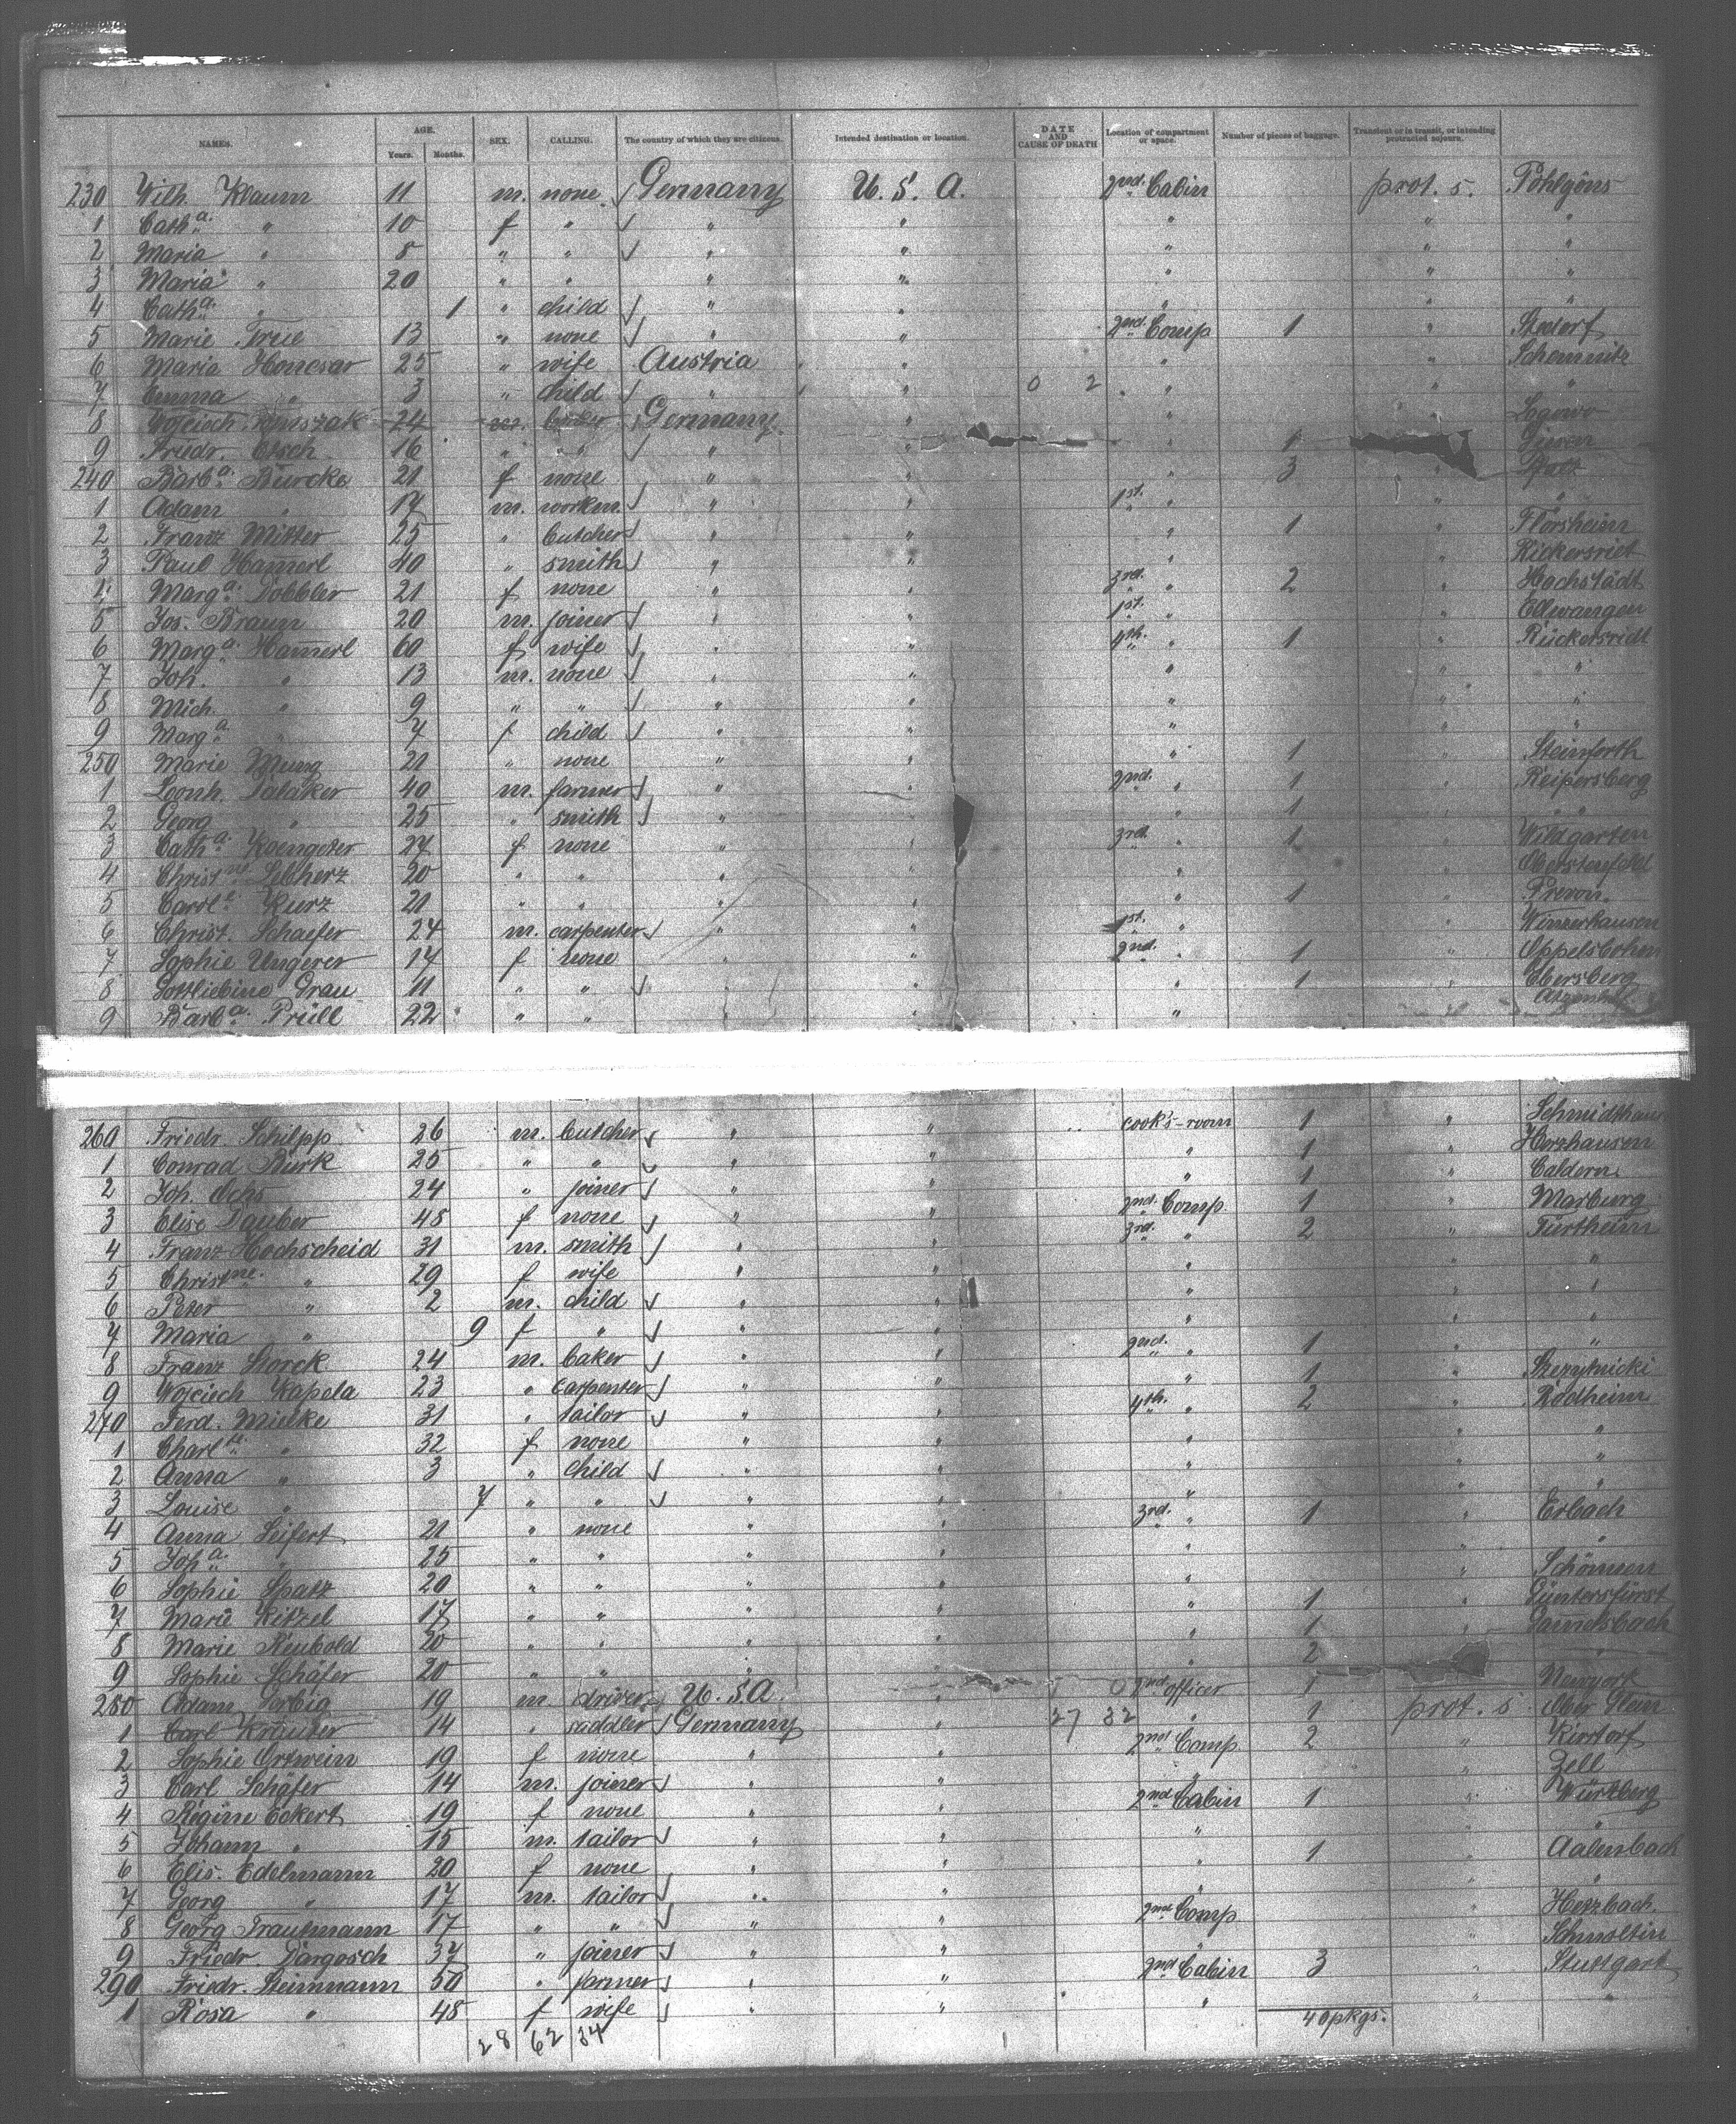 NAMES. AGE. Years. Months. SEX. CALLING. The country of which they are citizens. Intended destination or location. DATE AND CAUSE OF DEATH Location of compartment or space. Number of pieces of baggage. Transient or in transit, or intending protracted sojourn.
230 Wilh. Klaum 11 m. none Germany U. S. A. 2nd Cabin prot. s. Pohlgöns
1 Catha. " 10 f " " " " " "
2 Maria " 8 " " " " " " "
3 Maria " 20 " " " " " " "
4 Catha. " 1 " child " " " " "
5 Marie True 13 " none " " 2nd Comp 1 "
6 Maria Honesar 25 " wife Austria " " " Schemnitz
7 Emma " 3 " child " " 0 2 " " "
8 Wojciech 24 m. Germany " "
9 Friedr. Etsch 16 " " " " " 1 Giesen
240 Barba. Bürcke 21 f none " " " 3 "
1 Adam " 17 m. workm. " " 1st. " " "
2 Franz Mitter 25 " butcher " " " 1 " Flörsheim
3 Paul Hamerl 40 " smith " " " " Rickersriet
4 Marga. Dobbler 21 f none " " 3rd. " 2 " Hochstädt
5 Jos. Braun 20 m. joiner " " 1st. " " Ellwangen
6 Marga. Hamerl 60 f wife " " 4th. " 1 " Rückersridt
7 Joh. " 13 m. none " " " " "
8 Mich. " 9 " " " " " " "
9 Marga. " 7 f child " " " " "
250 Marie Mung 21 " none " " " 1 " Steinforth
1 Leonh. 40 m. farmer " " 2nd. " 1 " Reipersberg
2 Georg " 25 " smith " " " 1 " "
3 Catha. Koengeter 24 f none " " 3rd. " 1 " Wildgarten
4 Christne. 20 " " " " " "
5 Carola. Kurz 21 " " " " " 1 " Prevor.
6 Christ. Schaefer 24 m. carpenter " " 1st. " " Winzerhausen
7 Sophie Ungerer 14 f none " " 2nd. " 1 " Oppelsbohm
8 Gottliebine Grau 11 " " " " " 1 " Ebersberg
9 Barba. Prüll 22 " " "
260 Friedr. Schilpp 26 m. butcher " " cook's-room 1 "
1 Conrad Bürk 25 " " " " " 1 " Herzhausen
2 Joh. Ochs 24 " joiner " " " 1 " Caldern.
3 Elise Dauber 48 f none " " 2nd. Comp. 1 " Marburg
4 Franz Hochscheid 31 m. smith " " 3rd. " 2 " Fürtheim
5 Christne. " 29 f wife " " " "
6 Peter " 2 m. child " " " " "
7 Maria " 9 f " " " " " "
8 Franz Storck 24 m. baker " " 2nd. " 1 " "
9 Wojciech Kapela 23 " carpenter " " " 1 "
270 Ferd. Mielke 31 " tailor " " 4th. " 2 " Rödheim
1 Charlte. " 32 f none " " " "
2 Anna " 3 " child " " " " "
3 Louise " 7 " " " " " " "
4 Anna Seifert 21 " none " " 3rd. " 1 " Erbach
5 Joha. " 25 " " " " " " "
6 Sophie Spatz 20 " " " " " " Schönnen
7 Marie Kitzel 17 " " " " " 1 " Güntersfürst
8 Marie Neubold 20 " " " " " 1 "
9 Sophie Schäfer 20 " " " " " 2 "
280 Adam 19 m. driver U. S. A. " 2nd officer 1 Newyork
1 Carl Kräuter 14 " saddler Germany " 27 32 " 1 prot. s.
2 Sophie Ortwein 19 f none " " 2nd Comp 2 " Kirtorf
3 Carl Schäfer 14 m. joiner " " " " Zell
4 Regine Eckert 19 f none " " 2nd Cabin 1 " Würtberg
5 Johann " 15 m. tailor " " " " "
6 Elis. Edelmann 20 f none " " " 1 " Aalenbach
7 Georg " 17 m. tailor " " " " "
8 Georg Trautmann 17 " " " " 2nd Comp " Herzbach.
9 Friedr. Dargosch 37 " joiner " " " " Schmolsin
290 Friedr. Steinmann 50 " farmer " " 2nd Cabin 3 " Stuttgart
1 Rosa " 48 f wife " " " " "
40 pkgs.
28 62 34